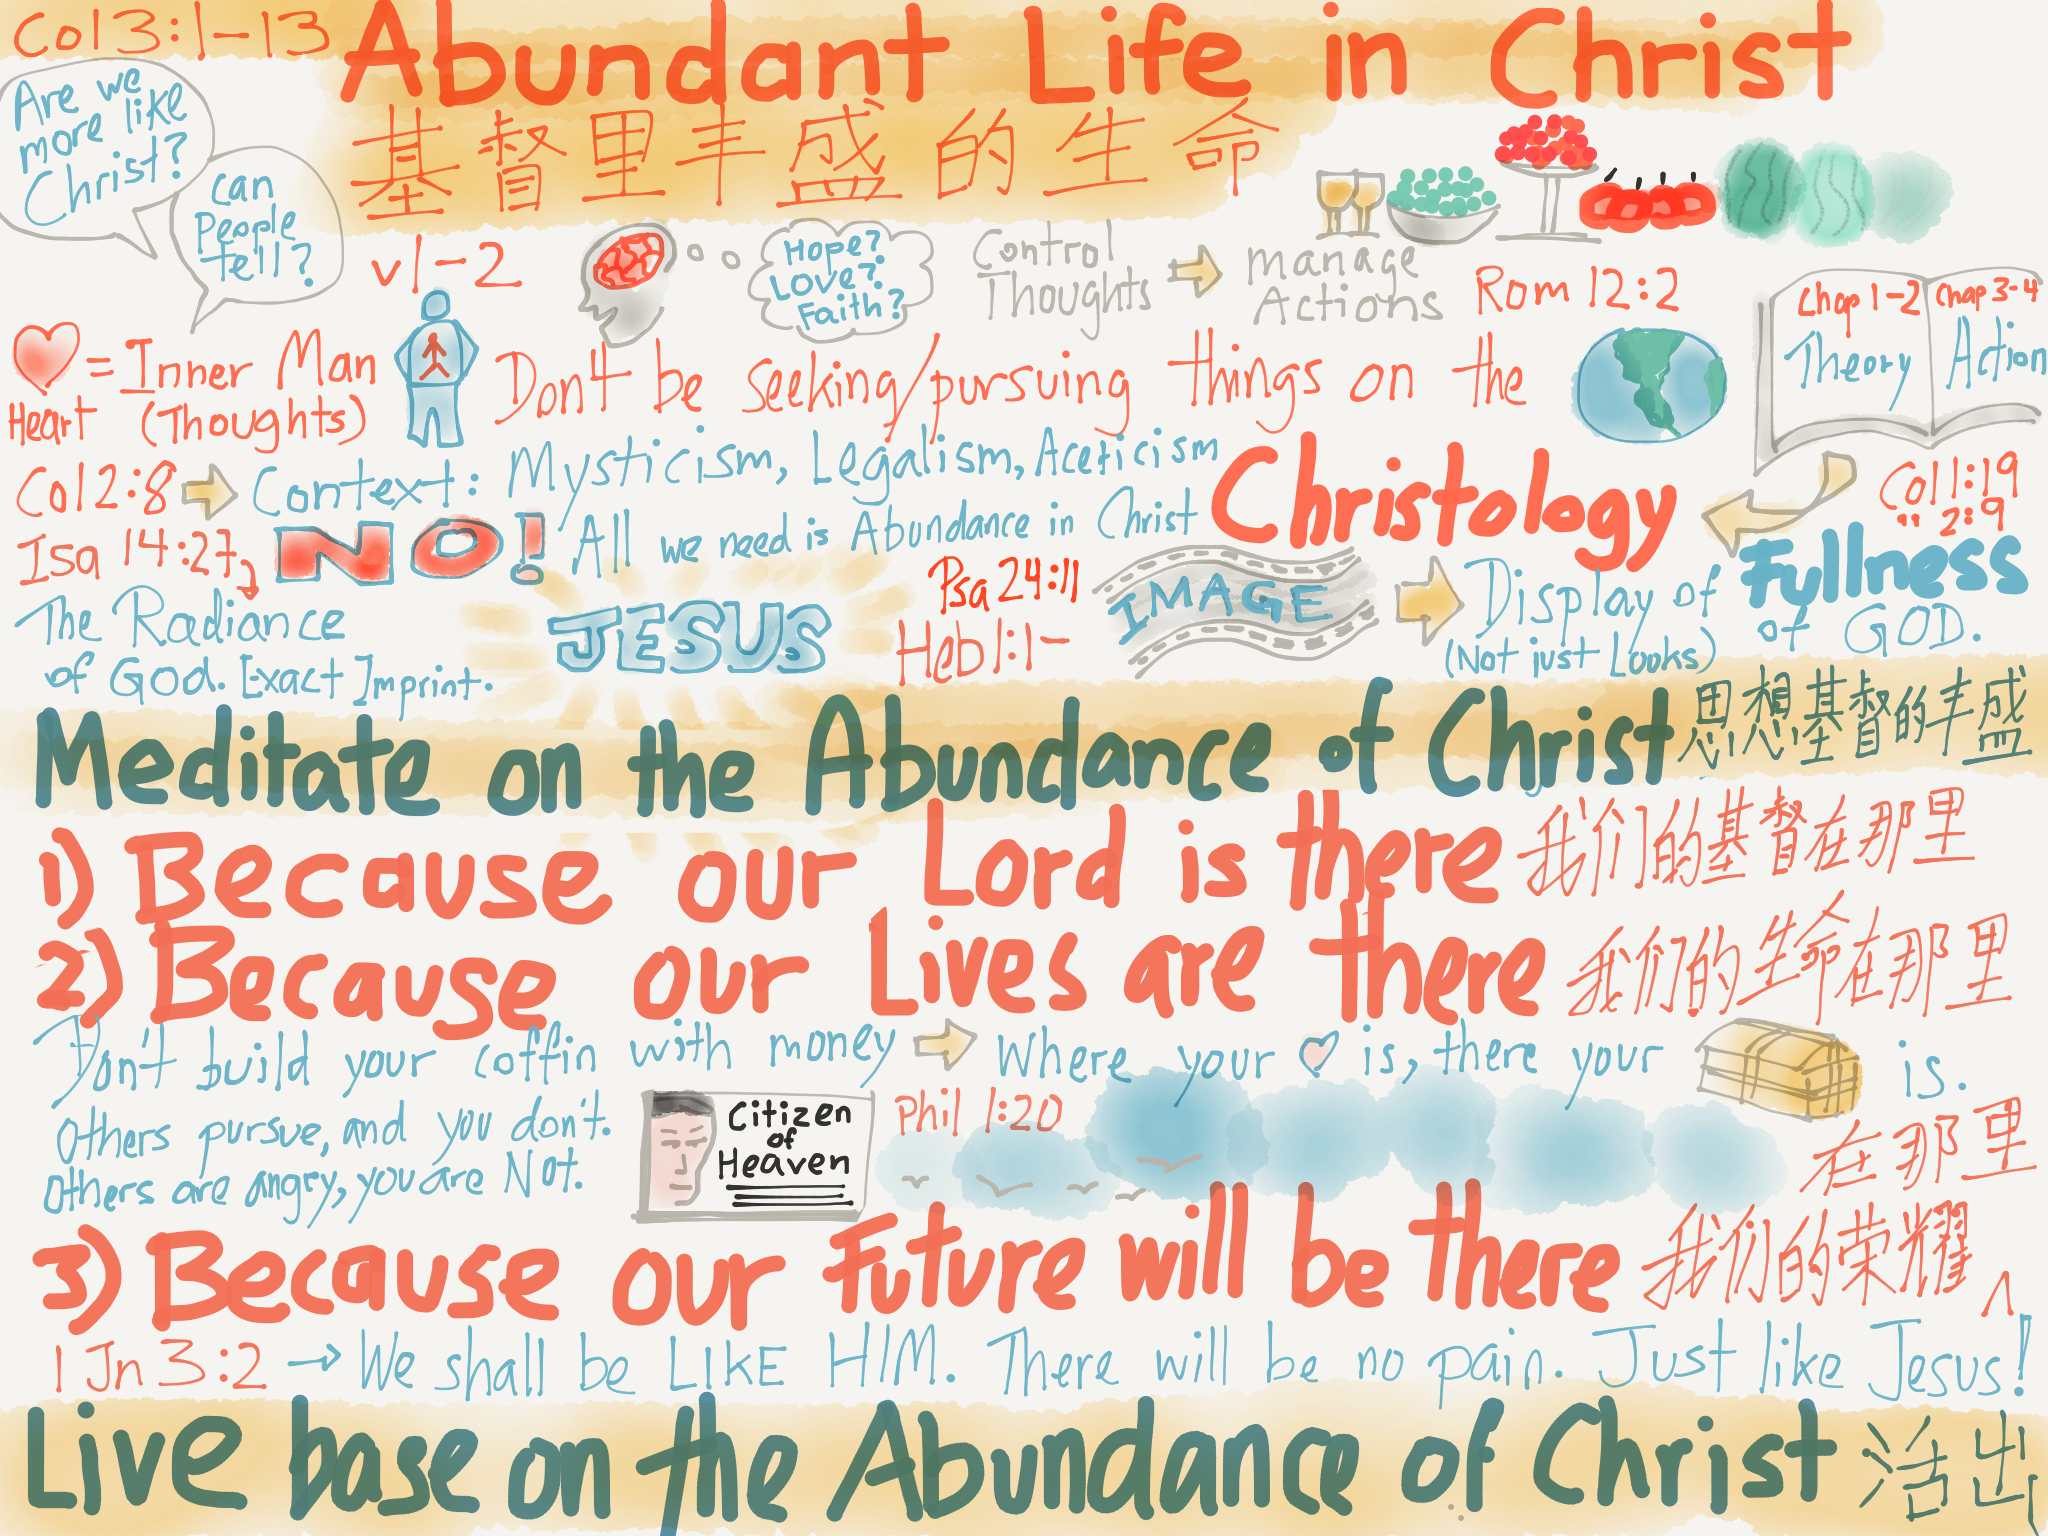 Col 3:1-13
Abundant Life in Christ
基督里丰盛的生命
Are we
more like
Christ?
Can
People
tell?
v1-2
Hope?
Love?
Faith?
Control
Thoughts
manage
Actions
Rom 12:2
Chap 1-2
Theory
Chap 3-4
Action
= Inner Man
Heart (Thoughts)
Don't be seeking/pursuing things on the
Col 2:8
Context: Mysticism, Legalism, Aceticism
Isa 14:27
NO!
All we need is Abundance in Christ
Christology
Col 1:19
" 2:9
The Radiance
of God. Exact Imprint.
JESUS
Psa 24:11
Heb 1:1-
IMAGE
Display of Fullness
(Not just Looks) of GOD.
Meditate on the Abundance of Christ 思想基督的丰盛
1) Because our Lord is there 我们的基督在那里
2) Because our Lives are there 我们的生命在那里
Don't build your coffin with money
Where your is, there your is.
Others pursue, and you don't.
Others are angry, you are Not.
Citizen
of
Heaven
Phil 1:20
在那里
3) Because our Future will be there 我们的荣耀^
1 Jn 3:2 → We shall be LIKE HIM. There will be no pain. Just like Jesus!
Live base on the Abundance of Christ 活出